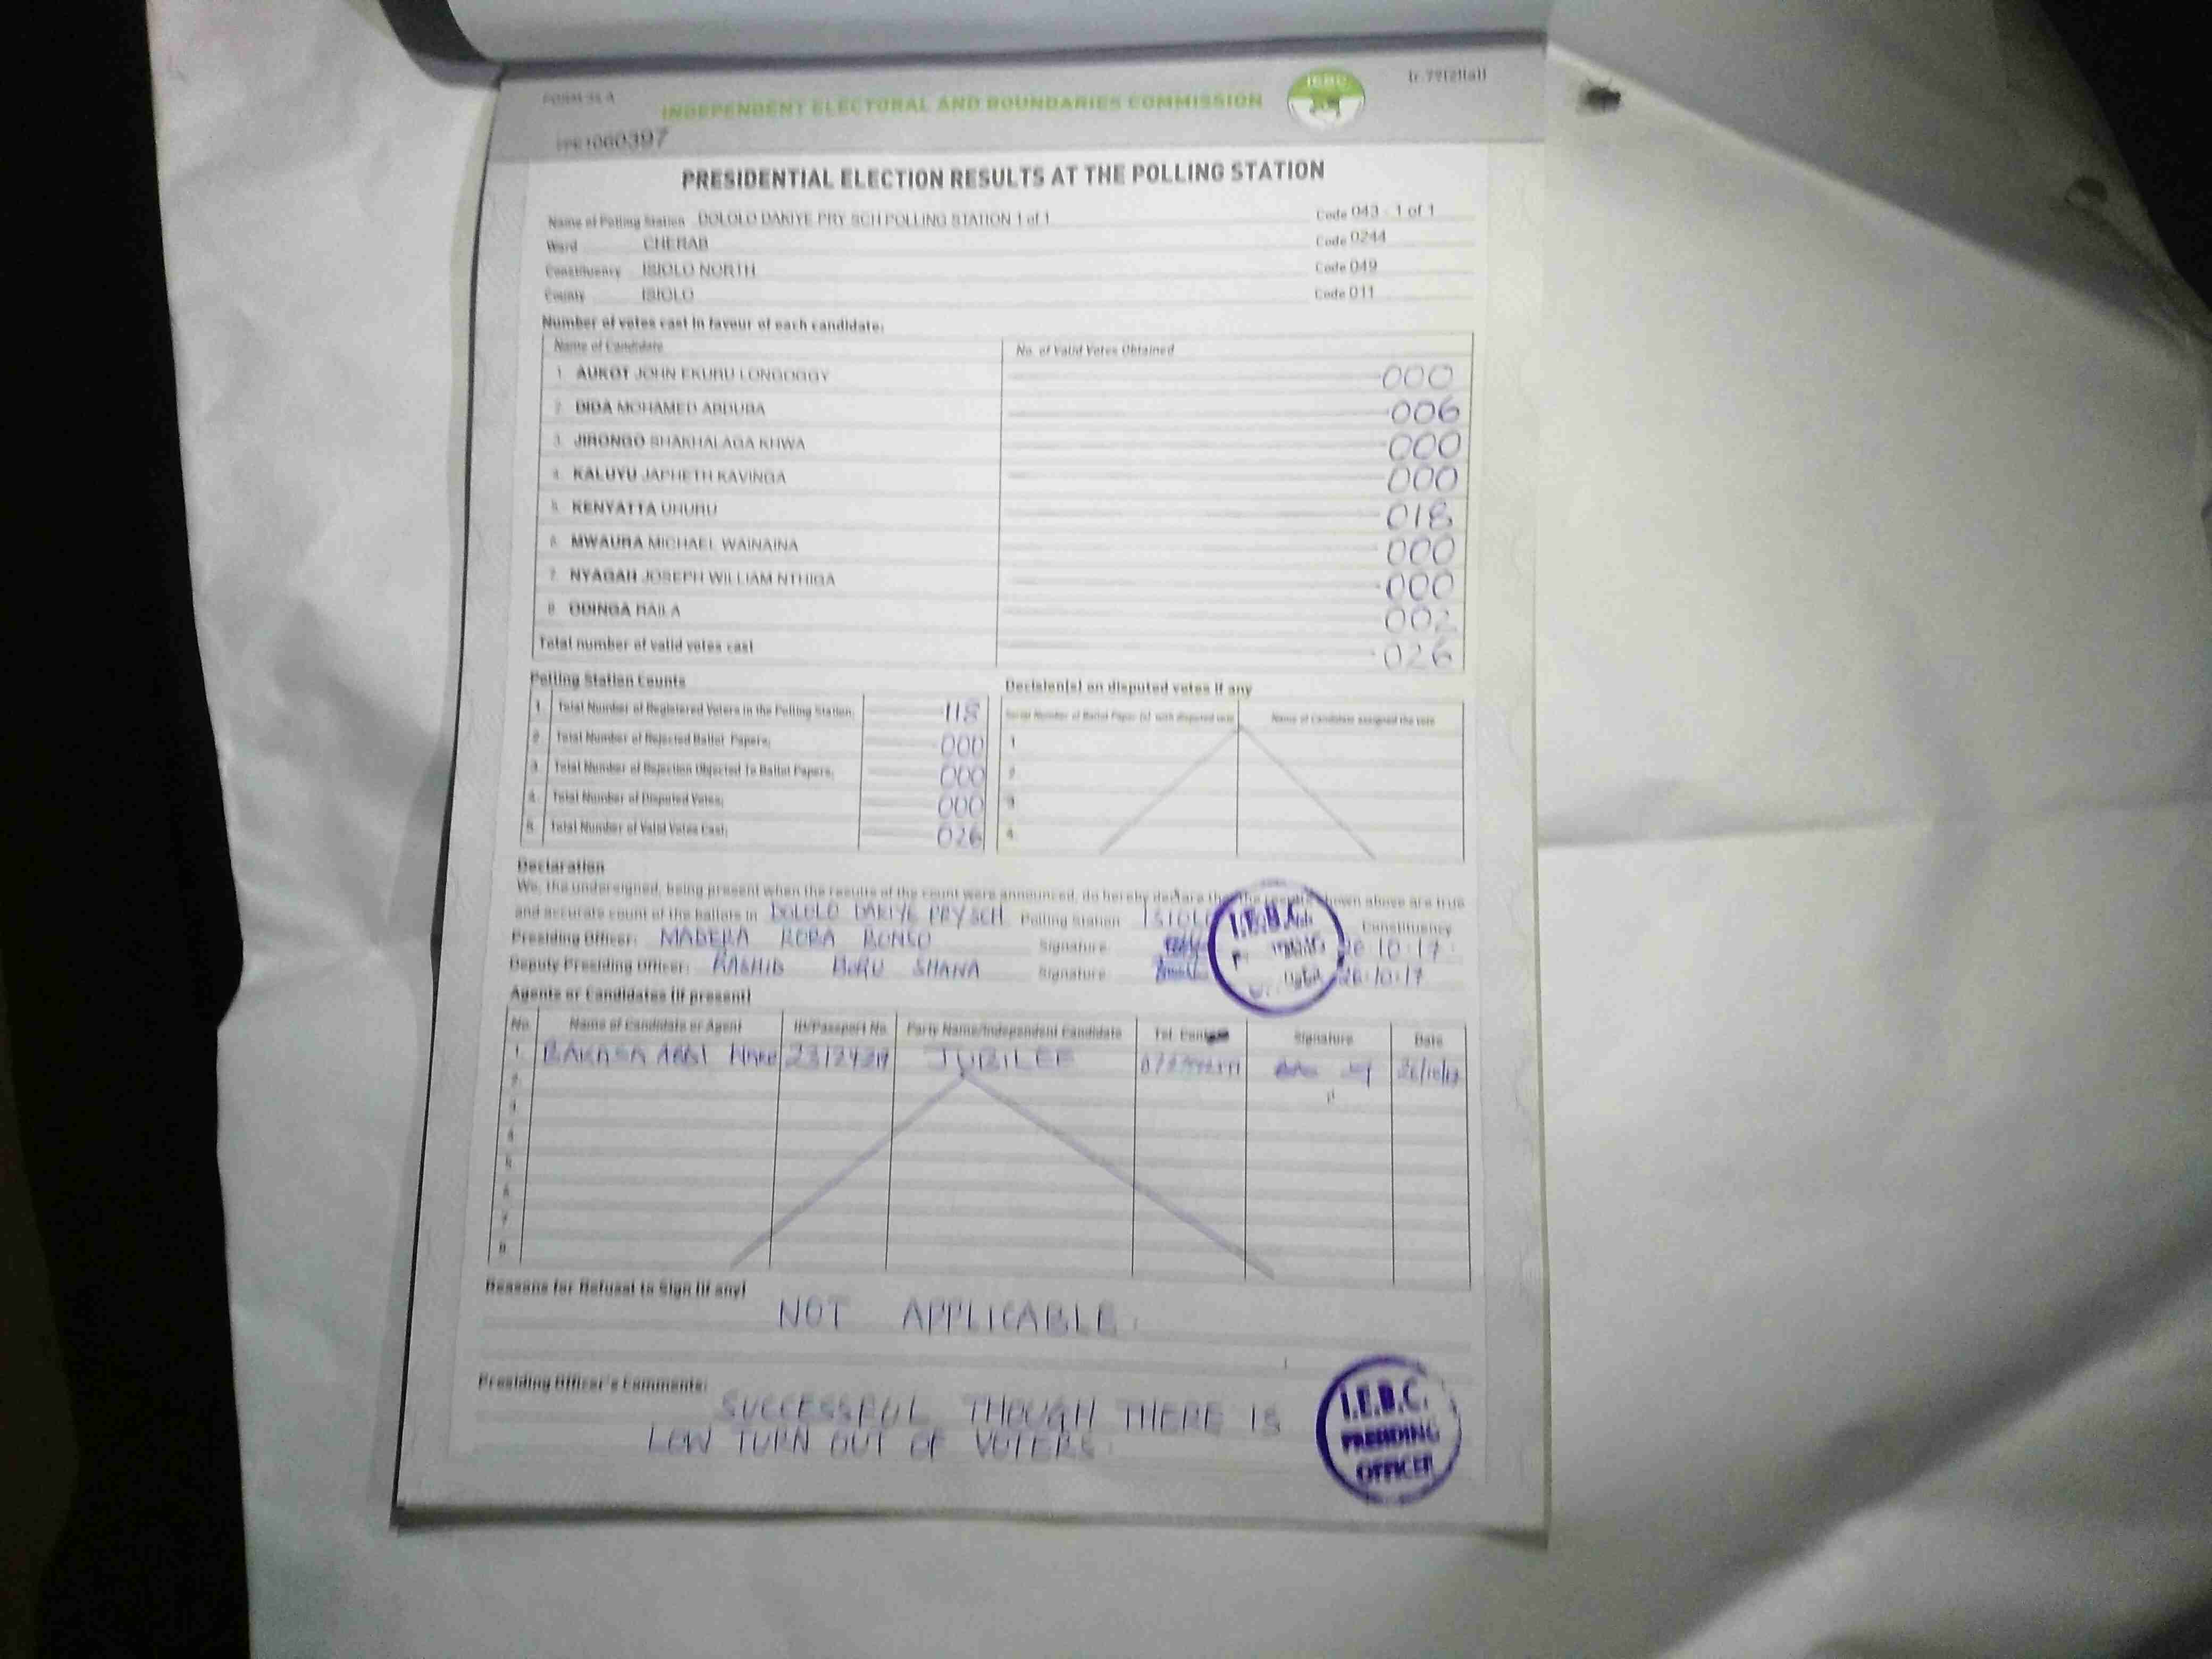 FORM 34 A
INDEPENDENT ELECTORAL AND BOUNDARIES COMMISSION
IEBC
1060397
PRESIDENTIAL ELECTION RESULTS AT THE POLLING STATION
Name of Polling Station DOLOLO DAKIYE PRY SCH POLLING STATION 1 of 1 Code 043 - 1 of 1
Ward CHERAB Code 0244
Constituency ISIOLO NORTH Code 049
County ISIOLO Code 011
Number of votes cast in favour of each candidate:
Name of Candidate No. of Valid Votes Obtained
1. AUKOT JOHN EKURU LONGOGGY 000
2. DIDA MOHAMED ABDUBA 006
3. JIRONGO SHAKHALAGA KHWA 000
4. KALUYU JAPHETH KAVINGA 000
5. KENYATTA UHURU 018
6. MWAURA MICHAEL WAINAINA 000
7. NYAGAH JOSEPH WILLIAM NTHIGA 000
8. ODINGA RAILA 002
Total number of valid votes cast 026
Polling Station Counts
1. Total Number of Registered Voters in the Polling Station: 118
2. Total Number of Rejected Ballot Papers: 000
3. Total Number of Rejection Objected To Ballot Papers: 000
4. Total Number of Disputed Votes: 000
5. Total Number of Valid Votes Cast: 026
Decision(s) on disputed votes if any
Serial Number of Ballot Paper (s) with disputed vote Name of Candidate assigned the vote
1
2
3
4
Declaration
We, the undersigned, being present when the results of the count were announced, do hereby declare that the results shown above are true
and accurate count of the ballots in DOLOLO DAKIYE PRY SCH Polling Station Constituency
Presiding Officer: MADERA ROBA BONSO Signature 26.10.17
Deputy Presiding Officer: RASHID BORU SHANA Signature 26.10.17
I.E.B.C.
Agents or Candidates (if present)
No. Name of Candidate or Agent ID/Passport No. Party Name/Independent Candidate Tel. Contact Signature Date
1. JUBILEE 26/10/17
2.
3
4
5
6
7
8
Reasons for Refusal to Sign (if any)
NOT APPLICABLE.
Presiding Officer's Comments:
SUCCESSFUL THOUGH THERE IS
LOW TURN OUT OF VOTERS.
I.E.B.C.
PRESIDING
OFFICER